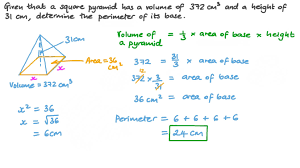 Given that a square pyramid has a volume of 372 cm³ and a height of
31 cm, determine the perimeter of its base.
31cm
Area = 36 cm²
x
x
Volume = 372 cm³
x² = 36
x = √36
= 6cm
Volume of a pyramid = 1/3 × area of base × height
372 = 31/3 × area of base
372 × 3/31 = area of base
36 cm² = area of base
Perimeter = 6 + 6 + 6 + 6
= 24 cm